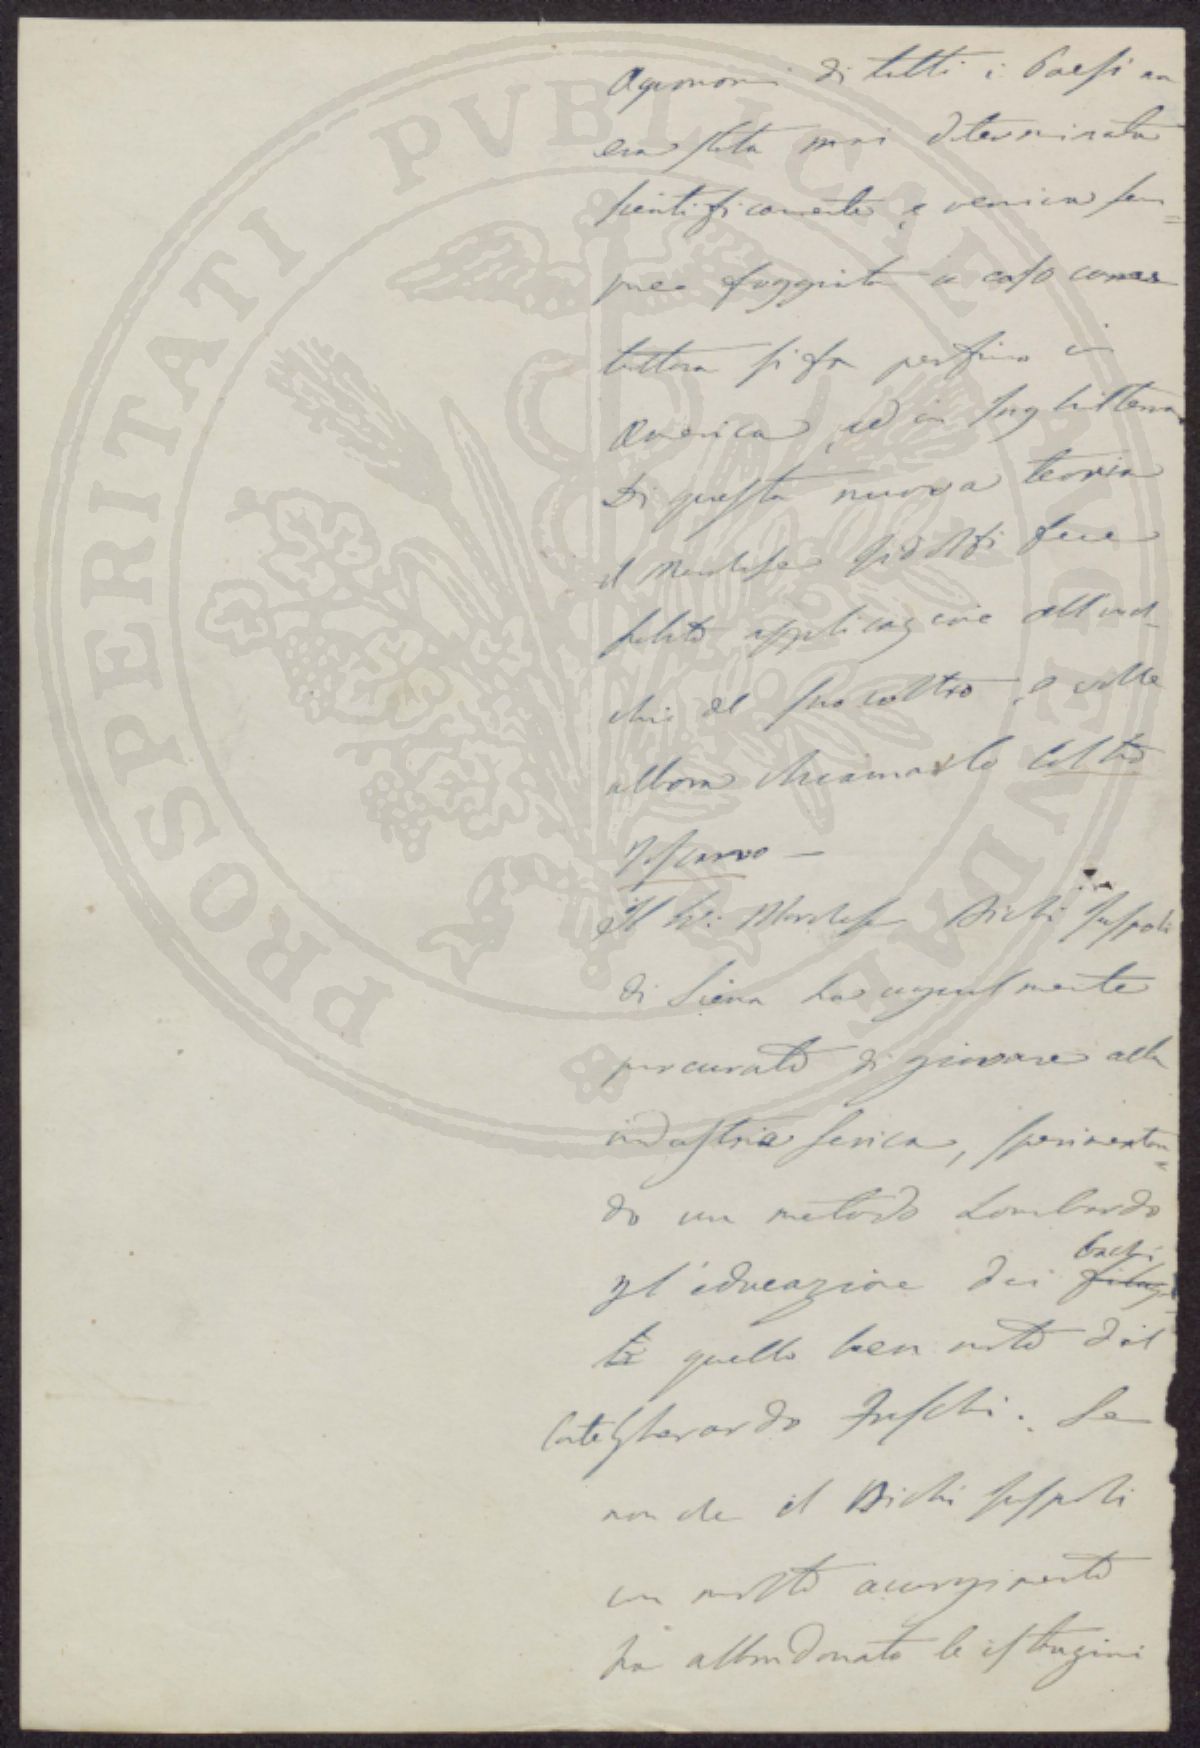 Agronomi di tutti i Paesi non
era stata mai determinata
scientificamente, e veniva sem=
pre foggiata a caso come
tuttora si fa perfino in
America, ed in Inghilterra
Di questa nuova teoria
il Marchese Ridolfi fece
subito applicazione all'orec-
chio del suo coltro, e volle
allora chiamarlo Coltro
Toscano —
Il Sig: Marchese Bichi Ruspoli
di Siena ha ugualmente
procurato di giovare alla
industria serica, sperimentan=
do un metodo Lombardo
p l'educazione dei bachi
quello ben noto del
Conte Gherardo Freschi. Se
non che il Bichi Ruspoli
con molto accorgimento
ha abbandonato le
PROSPERITATI PVBLICAE AVGENDAE